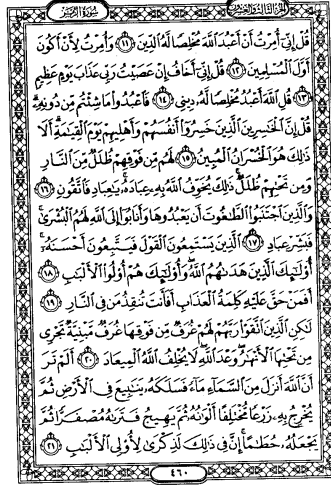 سورة الزمر الجزء الثالث والعشرون
قُلْ إِنِّي أُمِرْتُ أَنْ أَعْبُدَ اللَّهَ مُخْلِصًا لَهُ الدِّينَ ١١ وَأُمِرْتُ لِأَنْ أَكُونَ
أَوَّلَ الْمُسْلِمِينَ ١٢ قُلْ إِنِّي أَخَافُ إِنْ عَصَيْتُ رَبِّي عَذَابَ يَوْمٍ عَظِيمٍ
١٣ قُلِ اللَّهَ أَعْبُدُ مُخْلِصًا لَهُ دِينِي ١٤ فَاعْبُدُوا مَا شِئْتُمْ مِنْ دُونِهِ
قُلْ إِنَّ الْخَاسِرِينَ الَّذِينَ خَسِرُوا أَنْفُسَهُمْ وَأَهْلِيهِمْ يَوْمَ الْقِيَامَةِ أَلَا
ذَلِكَ هُوَ الْخُسْرَانُ الْمُبِينُ ١٥ لَهُمْ مِنْ فَوْقِهِمْ ظُلَلٌ مِنَ النَّارِ
وَمِنْ تَحْتِهِمْ ظُلَلٌ ذَلِكَ يُخَوِّفُ اللَّهُ بِهِ عِبَادَهُ يَاعِبَادِ فَاتَّقُونِ ١٦
وَالَّذِينَ اجْتَنَبُوا الطَّاغُوتَ أَنْ يَعْبُدُوهَا وَأَنَابُوا إِلَى اللَّهِ لَهُمُ الْبُشْرَى
فَبَشِّرْ عِبَادِ ١٧ الَّذِينَ يَسْتَمِعُونَ الْقَوْلَ فَيَتَّبِعُونَ أَحْسَنَهُ
أُولَئِكَ الَّذِينَ هَدَاهُمُ اللَّهُ وَأُولَئِكَ هُمْ أُولُوا الْأَلْبَابِ ١٨
أَفَمَنْ حَقَّ عَلَيْهِ كَلِمَةُ الْعَذَابِ أَفَأَنْتَ تُنْقِذُ مَنْ فِي النَّارِ ١٩
لَكِنِ الَّذِينَ اتَّقَوْا رَبَّهُمْ لَهُمْ غُرَفٌ مِنْ فَوْقِهَا غُرَفٌ مَبْنِيَّةٌ تَجْرِي
مِنْ تَحْتِهَا الْأَنْهَارُ وَعْدَ اللَّهِ لَا يُخْلِفُ اللَّهُ الْمِيعَادَ ٢٠ أَلَمْ تَرَ
أَنَّ اللَّهَ أَنْزَلَ مِنَ السَّمَاءِ مَاءً فَسَلَكَهُ يَنَابِيعَ فِي الْأَرْضِ ثُمَّ
يُخْرِجُ بِهِ زَرْعًا مُخْتَلِفًا أَلْوَانُهُ ثُمَّ يَهِيجُ فَتَرَاهُ مُصْفَرًّا ثُمَّ
يَجْعَلُهُ حُطَامًا إِنَّ فِي ذَلِكَ لَذِكْرَى لِأُولِي الْأَلْبَابِ ٢١
٤٦٠